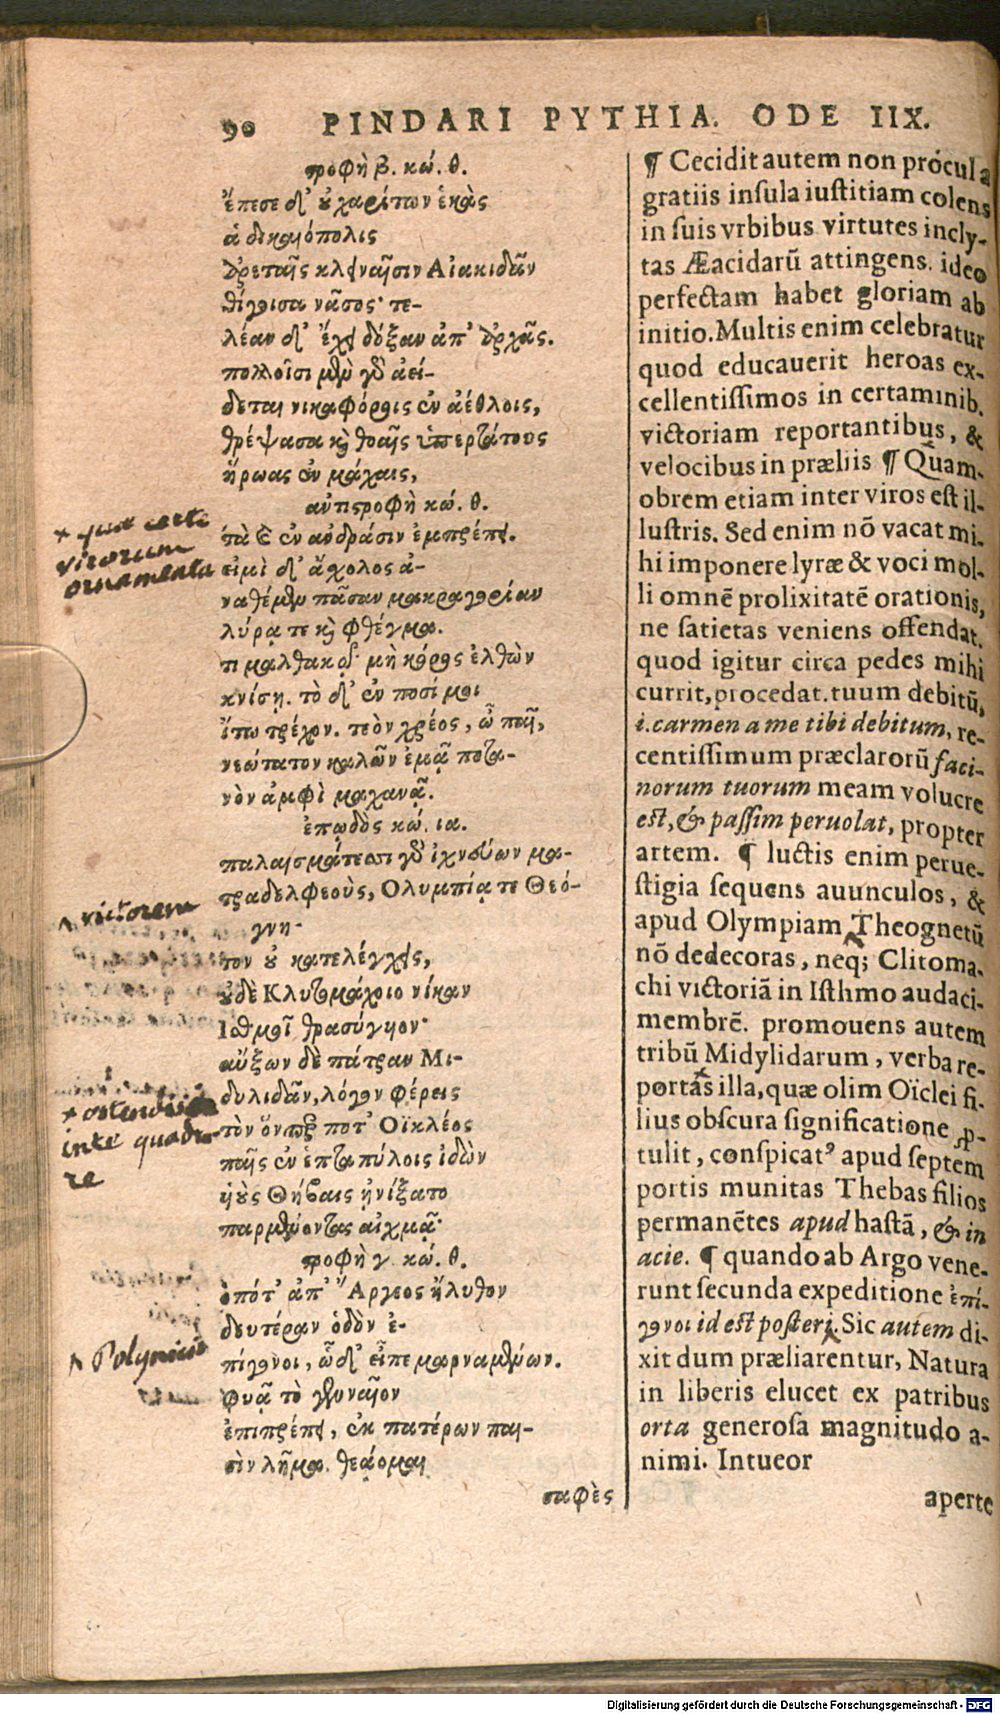 90 PINDARI PYTHIA. ODE IIX.
στροφὴ β. κώ. θ.
ἔπεσε δ' οὐ χαρίτων ἑκὰς
ἁ δικαιόπολις
ἀρεταῖς κλειναῖσιν Αἰακιδᾶν
θίγοισα νᾶσος· τε-
λέαν δ' ἔχει δόξαν ἀπ' ἀρχᾶς.
πολλοῖσι μὲν γὰρ ἀεί-
δεται νικαφόροις ἐν ἀέθλοις,
θρέψασα καὶ θοαῖς ὑπερτάτους
ἥρωας ἐν μάχαις,
ἀντιστροφὴ κώ. θ.
τὰ δὲ ἐν ἀνδράσιν ἐμπρέπει.
εἰμὶ δ' ἄσχολος ἀ-
ναθέμεν πᾶσαν μακραγορίαν
λύρᾳ τε καὶ φθέγμα-
τι μαλθακῷ· μὴ κόρος ἐλθὼν
κνίσῃ. τὸ δ' ἐν ποσί μοι
ἴτω τρέχον. τεὸν χρέος, ὦ παῖ,
νεώτατον καλῶν ἐμᾷ ποτα-
νὸν ἀμφὶ μαχανᾷ.
ἐπῳδὸς κώ. ια.
παλαισμάτεσσι γὰρ ἰχνεύων μα-
τραδελφεοὺς, Ολυμπίᾳ τε Θεό-
γνη-
τον οὐ κατελέγχεις,
οὐδὲ Κλυτομάχοιο νίκαν
Ισθμοῖ θρασύγυιον·
αὔξων δὲ πάτραν Μι-
δυλιδᾶν, λόγον φέρεις
τὸν ὅνπερ ποτ' Οϊκλέος
παῖς ἐν ἑπταπύλοις ἰδὼν
υἱοὺς Θήβαις ᾐνίξατο
παρμένοντας αἰχμᾷ·
στροφὴ γ. κώ. θ.
ὁπότ' ἀπ' Ἄργεος ἤλυθον
δευτέραν ὁδὸν ἐ-
πίγονοι, ὧδ' εἶπε μαρναμένων.
φυᾷ τὸ γενναῖον
ἐπιπρέπει, ἐκ πατέρων παι-
σὶν λῆμα. θεάομαι
σαφὲς
¶ Cecidit autem non prócul a
gratiis insula iustitiam colens
in suis vrbibus virtutes incly-
tas Æacidarũ attingens. ideo
perfectam habet gloriam ab
initio. Multis enim celebratur
quod educauerit heroas ex-
cellentissimos in certaminib.
victoriam reportantibus, &
velocibus in præliis ¶ Quam-
obrem etiam inter viros est il-
lustris. Sed enim nõ vacat mi-
hi imponere lyræ & voci mol-
li omnẽ prolixitatẽ orationis,
ne satietas veniens offendat.
quod igitur circa pedes mihi
currit, procedat. tuum debitũ,
i. carmen a me tibi debitum, re-
centissimum præclarorũ faci-
norum tuorum meam volucre
est, & passim peruolat, propter
artem. ¶ luctis enim perue-
stigia sequens auunculos, &
apud Olympiam Theognetũ
nõ dedecoras, neq; Clitoma-
chi victoriã in Isthmo audaci-
membrẽ. promouens autem
tribũ Midylidarum, verba re-
portas illa, quæ olim Oïclei fi-
lius obscura significatione p-
tulit, conspicat⁹ apud septem
portis munitas Thebas filios
permanẽtes apud hastã, & in
acie. ¶ quando ab Argo vene-
runt secunda expeditione ἐπί-
γονοι id est posteri. Sic autem di-
xit dum præliarentur, Natura
in liberis elucet ex patribus
orta generosa magnitudo a-
nimi. Intueor
aperte
+ quae certe
virorum
ornamenta
^ victorem
+ ostendis
inte quadra
re
^ Polynicis
Digitalisierung gefördert durch die Deutsche Forschungsgemeinschaft - DFG